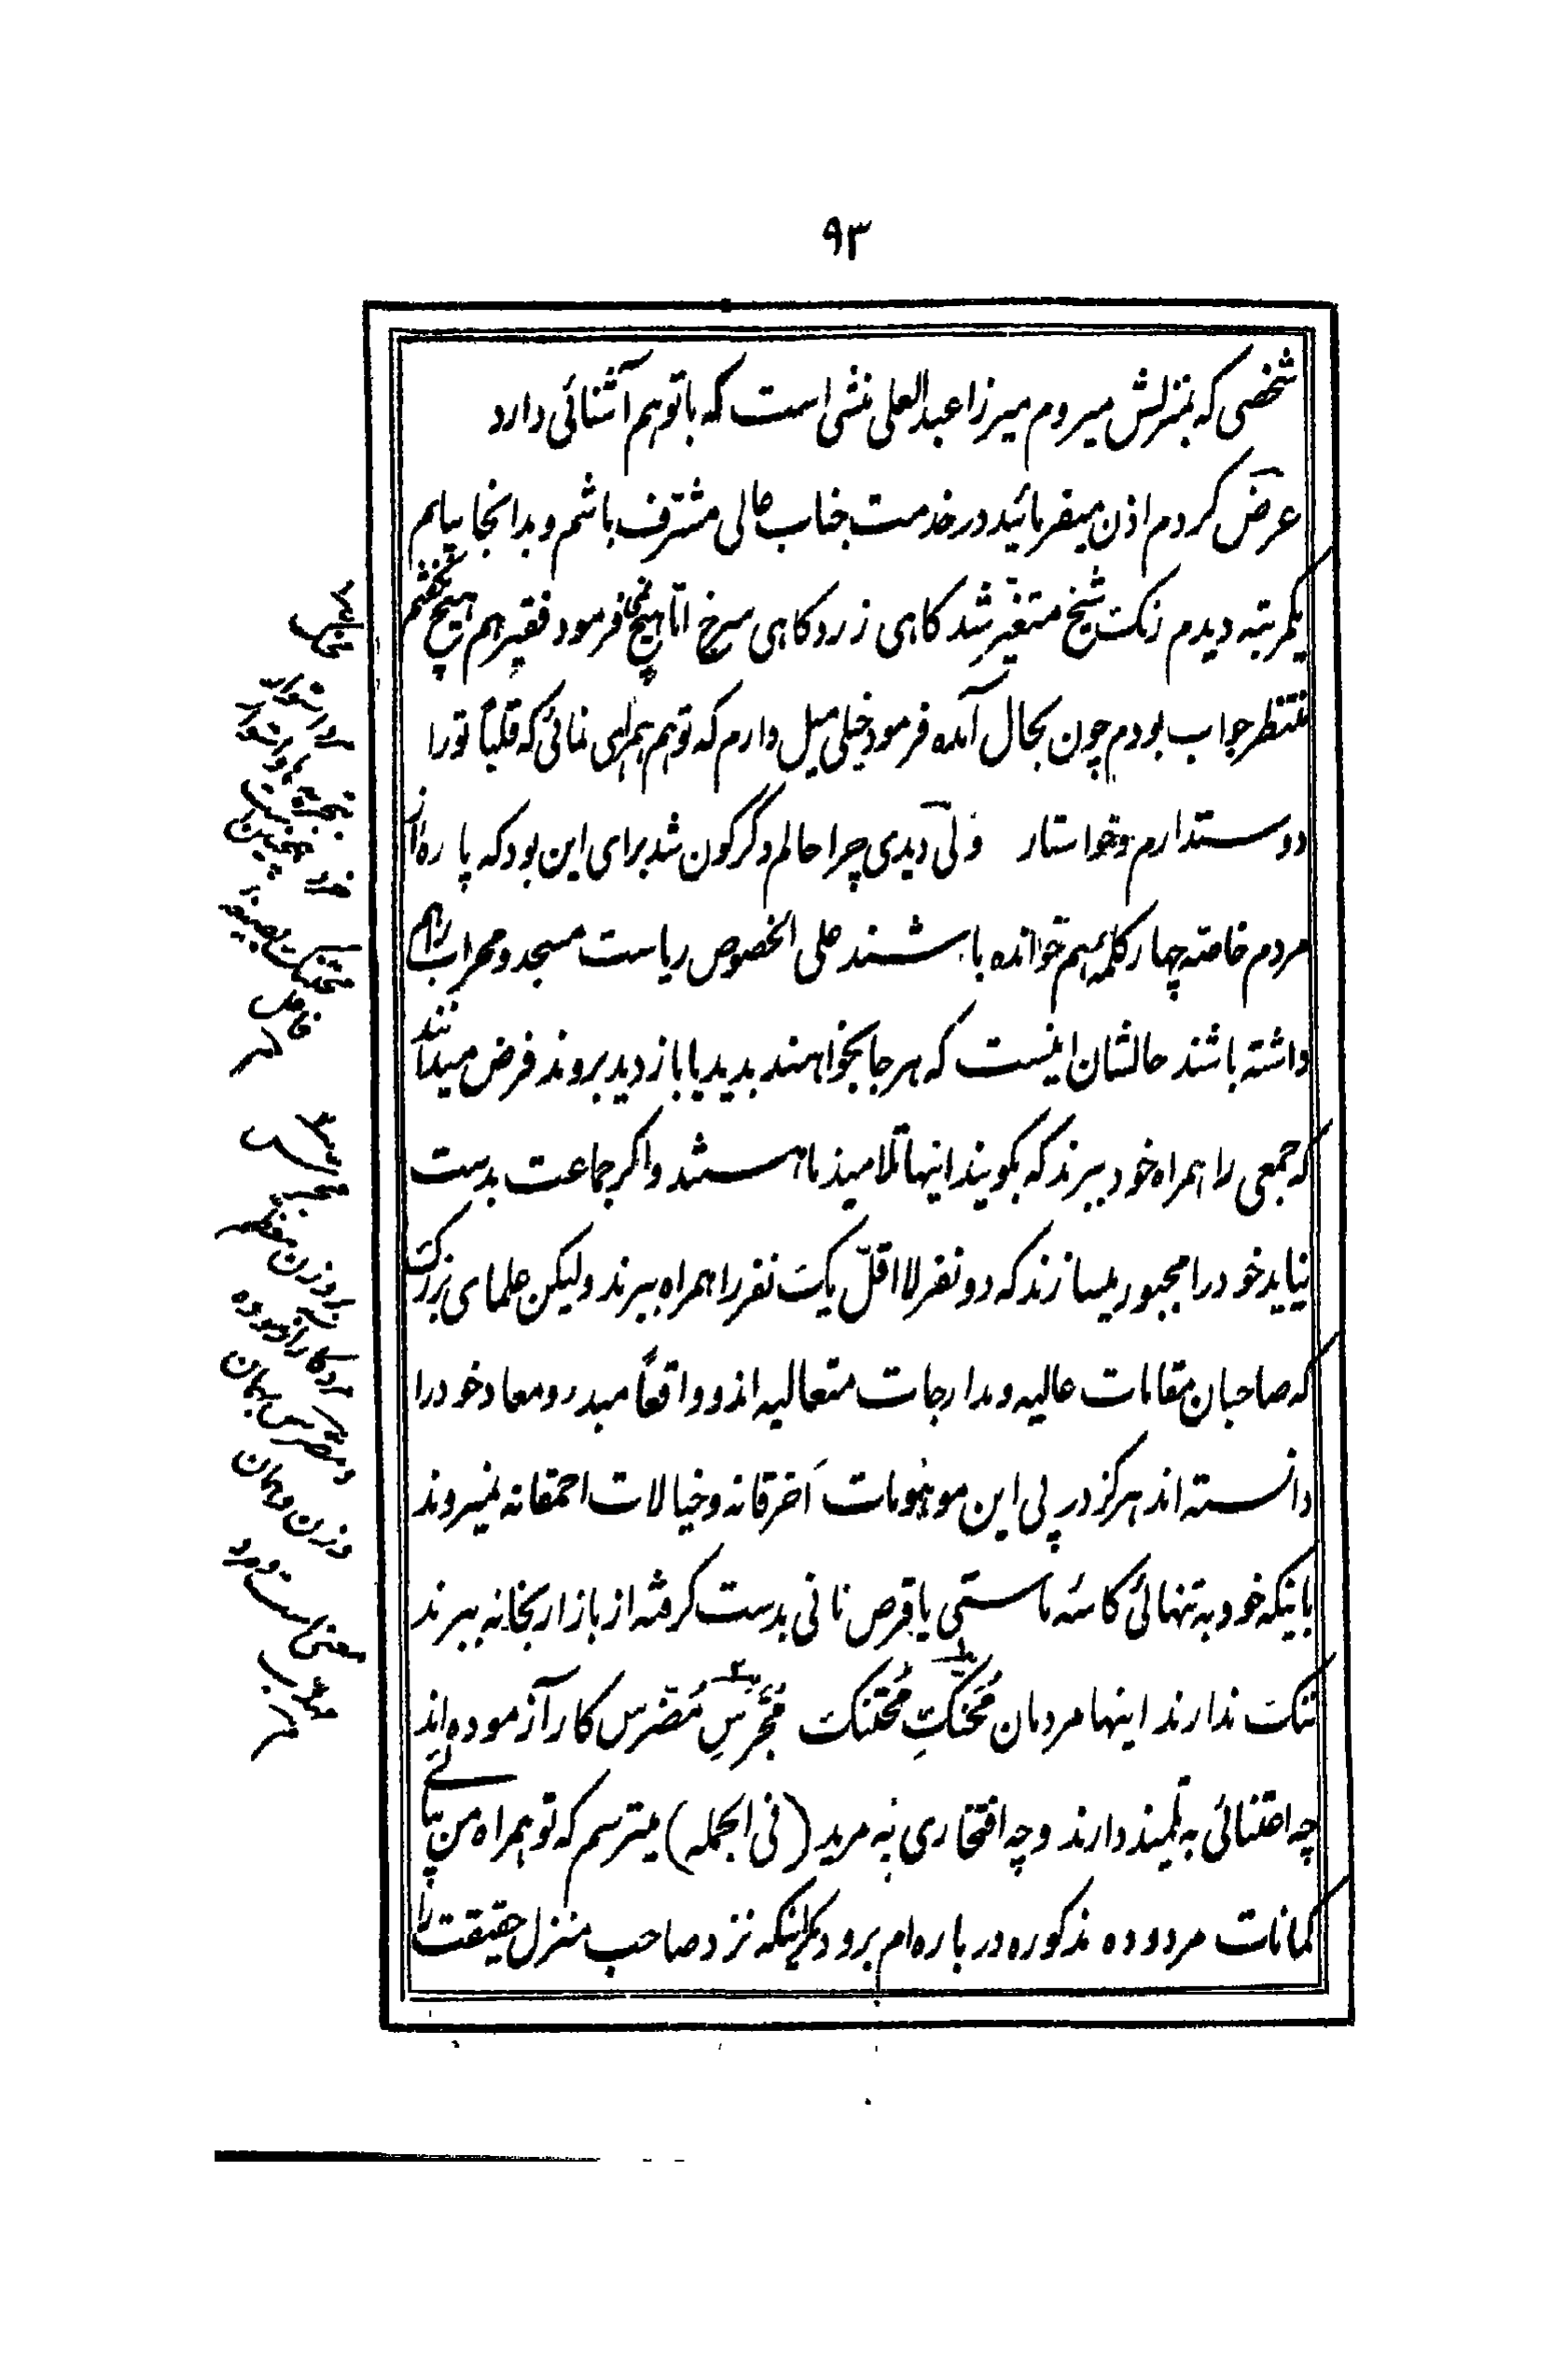 ۹۳
شخصی که بمنزلش میروم میرزا عبدالعلی منشی است که با تو هم آشنائی دارد
عرض کردم اذن میفرمائید در خدمت جناب عالی مشرف باشم و بدانجا بیایم
یکمرتبه دیدم رنگ شیخ متغیّر شد کاهی زرد کاهی سرخ امّا هیچ نفرمود فقیر هم هیچ نگفتم
منتظر جواب بودم چون بحال آمده فرمود خیلی میل دارم که تو هم همراهی نمائی که قلباً تو را
دوستدارم و خواستار ولی دیدی چرا حالم دگرگون شد برای این بود که پاره از
مردم خاصّه چهار کلمه هم خوانده باشند علی الخصوص ریاست مسجد و محراب را هم
داشته باشند حالشان اینست که هر جا بخواهند بدید یا بازدید بروند فرض میدانند
که جمعی را همراه خود ببرند که بگویند اینها تلامیذ ما هستند و اکر جماعت بدست
نیاید خود را مجبور میسازند که دو نفر لااقلّ یک نفر را همراه ببرند ولیکن علمای بزرک
که صاحبان مقامات عالیه و مدارجات متعالیه اند و واقعاً مبدء و معاد خود را
دانسته اند هرکز در پی این موهومات اخرقانه و خیالات احمقانه نمیروند
باینکه خود به تنهائی کاسه ماستی یا قرص نانی بدست کرفته از بازار بخانه ببرند
ننک ندارند اینها مردمان مُحَنّکِ مُحتنک مُجَرّسِ مُضرّس کار آزموده اند
چه اعتنائی به تلمیذ دارند و چه افتخاری به مرید (فی الجمله) میترسم که تو همراه من بیائی
کمانات مردوده مذکوره در باره ام برود مکر اینکه نزد صاحب منزل حقیقت را
محنک
مجرس
بر وزن
مرد کار آزموده
و مضرس بهمان
وزن و همان
معنی است